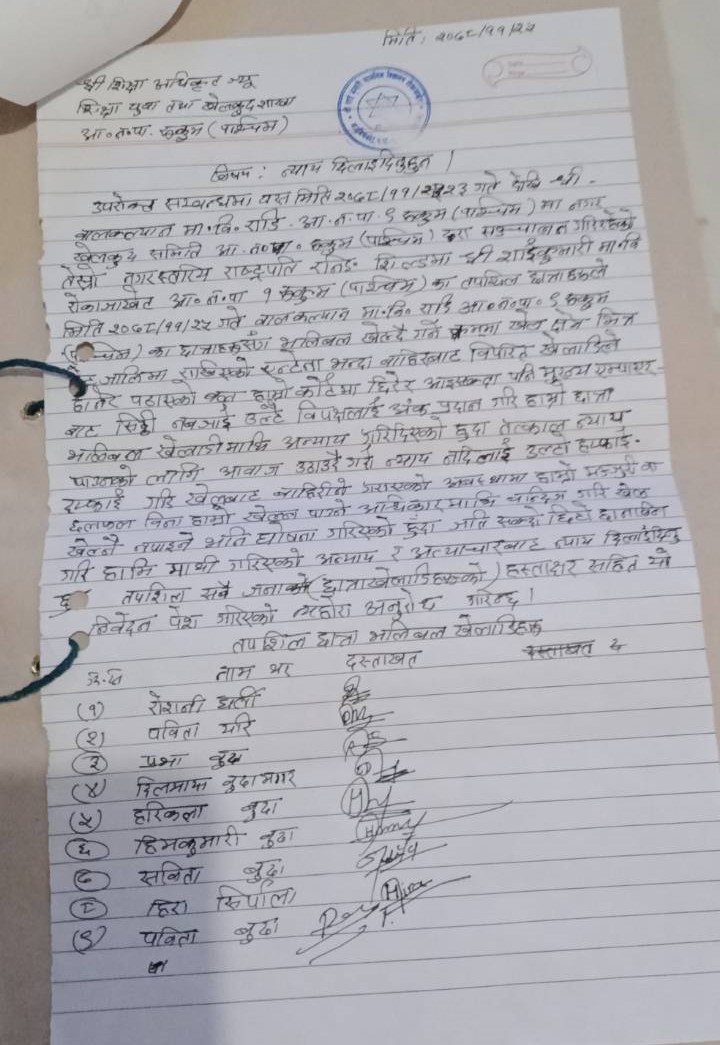 मिति: २०७८/११/२५
श्री शिक्षा अधिकृत ज्यू
शिक्षा युवा तथा खेलकुद शाखा
आ०न०पा. रुकुम (पाश्चिम)
विषय: न्याय दिलाइदिनुहुन ।
उपरोक्त सम्बन्धमा यस मिति २०७८/११/२३ गते देखि श्री -
बालकल्यान मा.वि. राडि. आ.न.पा ९ रुकुम (पाश्चिम) मा नगर
खेलकुद समिति आ.न०पा. रुकुम (पाश्चिम) द्वारा सञ्चालन गरिरहेको
तेस्रो नगरस्तरिय राष्ट्रपति रनिङ शिल्डमा श्री शाईकुमारी मा.वि
आ०न०पा १ रुकुम (पाश्चिम) का तपशिल छात्राहरुले
मिति २०७८/११/२५ गते बालकल्यान मा०वि० राडि आ०न०पा. ९ रुकुम
(पश्चिम) का छात्राहरुसंग भलिबल खेल्दै गर्ने क्रममा खेल
जालिमा राखिएको एन्टेना भन्दा बाहिरबाट विपरित खेलाडिले
पठाएको बल हाम्रो कोर्टमा आइसक्दा पनि मुख्य एम्पाएर
बाट सिट्ठी नबजाई उल्टै विपक्षलाई अंक प्रदान गरि हाम्रो छात्रा
भलिबल खेलाडी माथि अन्याय गरिदिएको हुदा तत्काल न्याय
पाउनको लागि आवाज उठाउदै गर्दा न्याय नदिलाई उल्टो हप्काई-
दप्काई गरि खेलबाट बाहिरीने गराएको अवस्थामा हाम्रो मञ्जुरी वा
छलफल विना हाम्रो खेलकुन पाउने अधिकार माथि गरि खेल
खेल्नै नपाइने भनि घोषना गरिएको हुदा जति सक्दो छिटो छानविन
गरि हामि माथी गरिएको अन्याय र अत्याचारबाट न्याय दिलाईदिनु
हु तपशिल सबै जनाको (छात्रा खेलाडिहरुको) हस्ताक्षर सहित यो
निवेदन पेश गरिएको व्यहोरा अनुरोध गरिन्छ ।
तपशिल छात्रा भलिबल खेलाडिहरु
नाम थर दस्ताखत
(१) रोशनी घर्ती
(२) पविता
(३) प्रभा बुढा
(४) दिलमाया बुढामगर
(५) हरिकला बुढा
(६) हिमकुमारी बुढा
(७) सविता बुढा
(८) हिरा सिर्पाली
(९) पविता बुढा